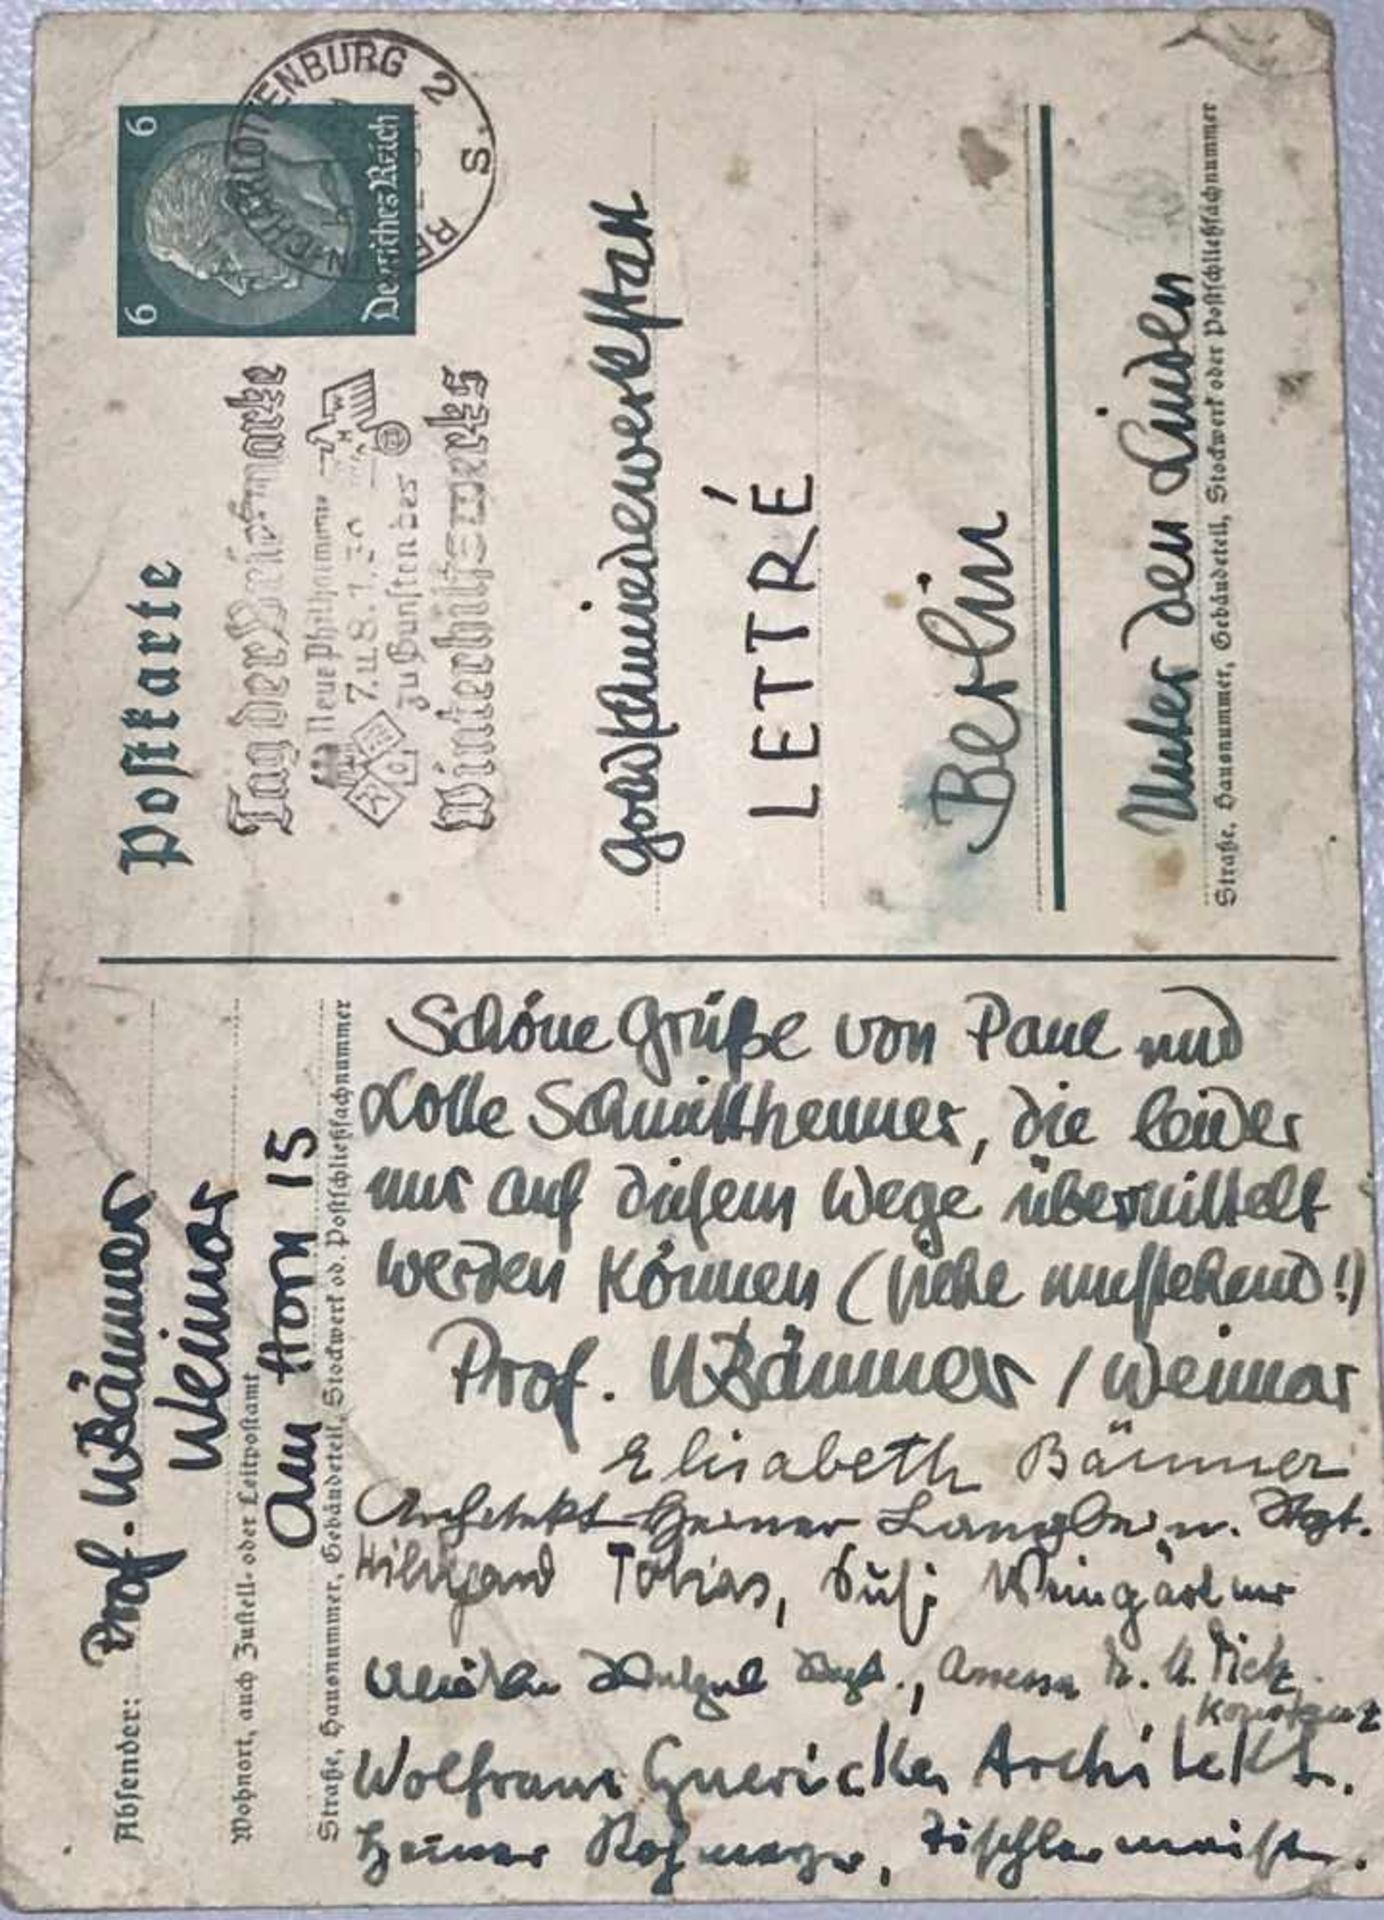 Postkarte
Tag der Briefmarke
Neue Philharmonie
7. u. 8. 1.
zu Gunsten des
Winterhilfswerks
6 6
Deutsches Reich
CHARLOTTENBURG 2
S.
Goldschmiedewerkstatt
LETTRÉ
Berlin
Unter den Linden
Straße, Hausnummer, Gebäudeteil, Stockwerk oder Postschließfachnummer
Absender: Prof. W Bäumer
Weimar
Wohnort, auch Zustell- oder Leitpostamt
am Horn 15
Straße, Hausnummer, Gebäudeteil, Stockwerk od. Postschließfachnummer
Schöne Grüße von Paul und
Lotte Schmitthenner, die leider
nur auf diesem Wege übermittelt
werden können (siehe umstehend!)
Prof. W Bäumer / Weimar
Elisabeth Bäumer
Architekt Heiner u. Stgt.
Hildegard Tobias, Susi Weingärtner
Stgt., Assessor Dr. U.
Konstanz
Wolfram Guericke, Architekt.
Heiner Tischlermeister.